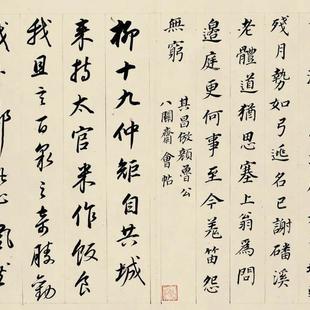 殘月勢如弓逃名已謝磻溪
老體道猶思塞上翁為問
邊庭更何事至今羌笛怨
無窮
其昌倣顏魯公
八關齋會帖
柳十九仲矩自共城
來持太官米作飯食
我且言百泉之奇勝勸
我卜鄰此心飄然